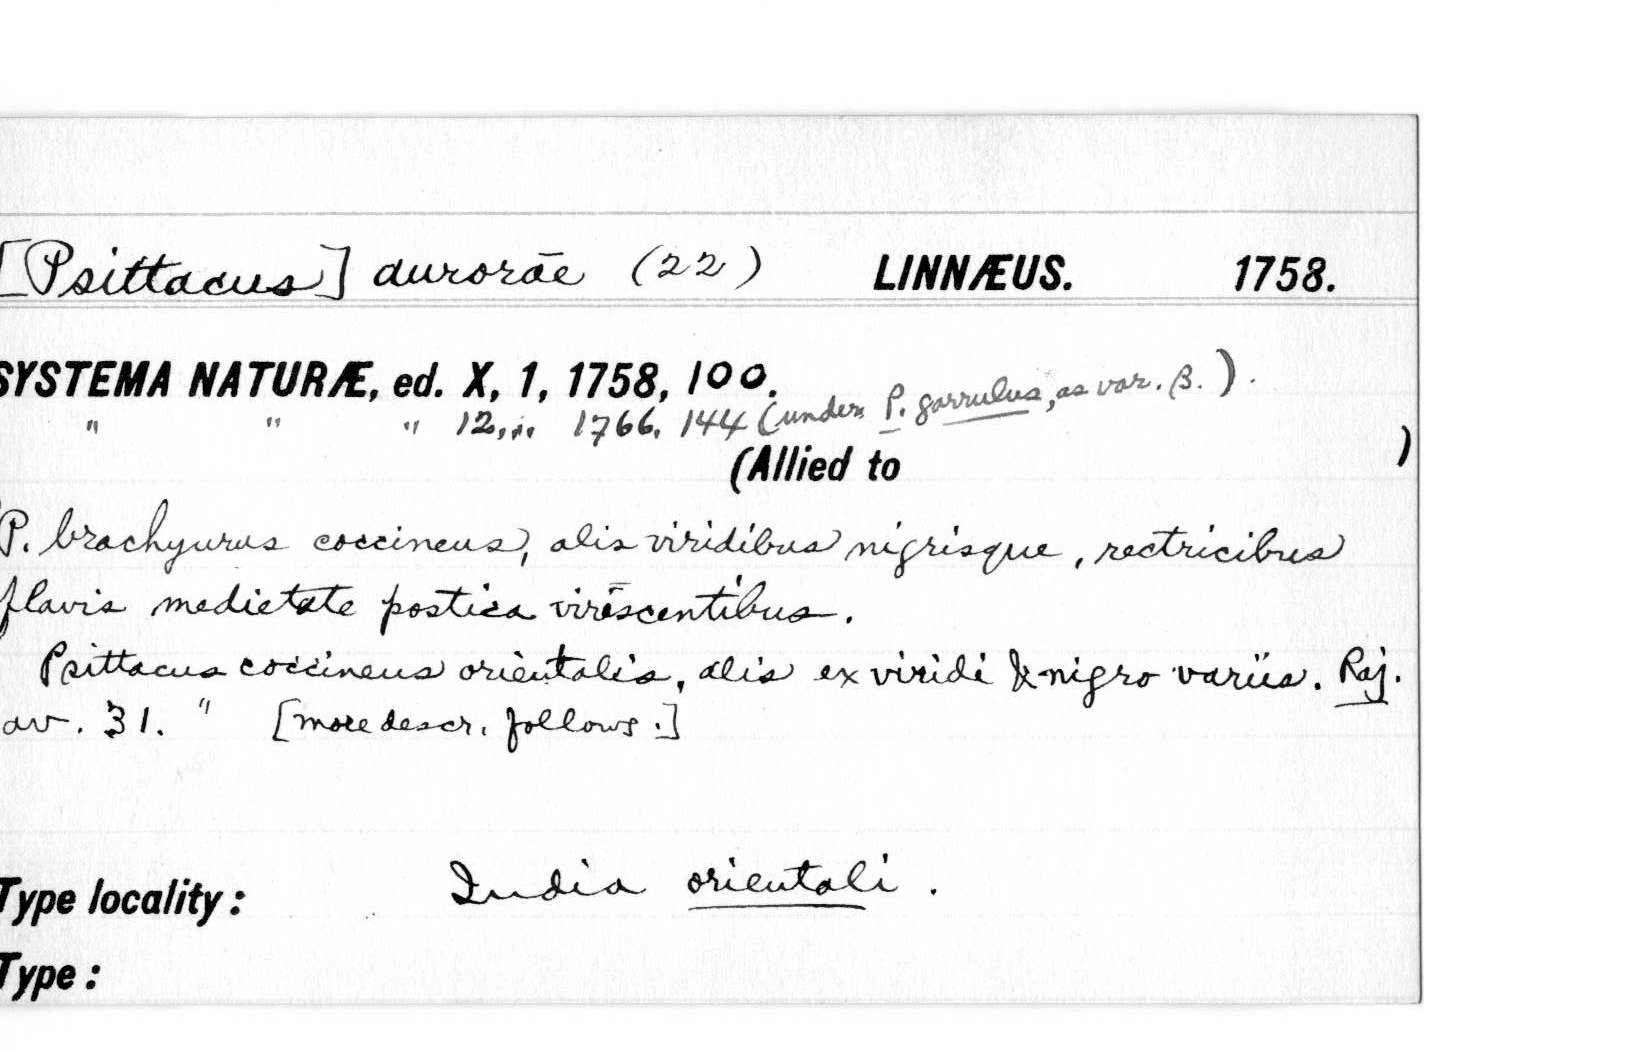 [Psittacus] aurorae (22) LINNÆUS. 1758.
SYSTEMA NATURÆ, ed. X, 1, 1758, 100.
" " " 12, ", 1766, 144 (under P. garrulus, as var. β.).
(Allied to )
P. brachyurus coccineus, alis viridibus nigrisque, rectricibus
flavis medietate postica virescentibus.
Psittacus coccineus orientalis, alis ex viridi & nigro variis. Raj.
av. 31. " [more descr. follows.]
Type locality: India orientali.
Type: